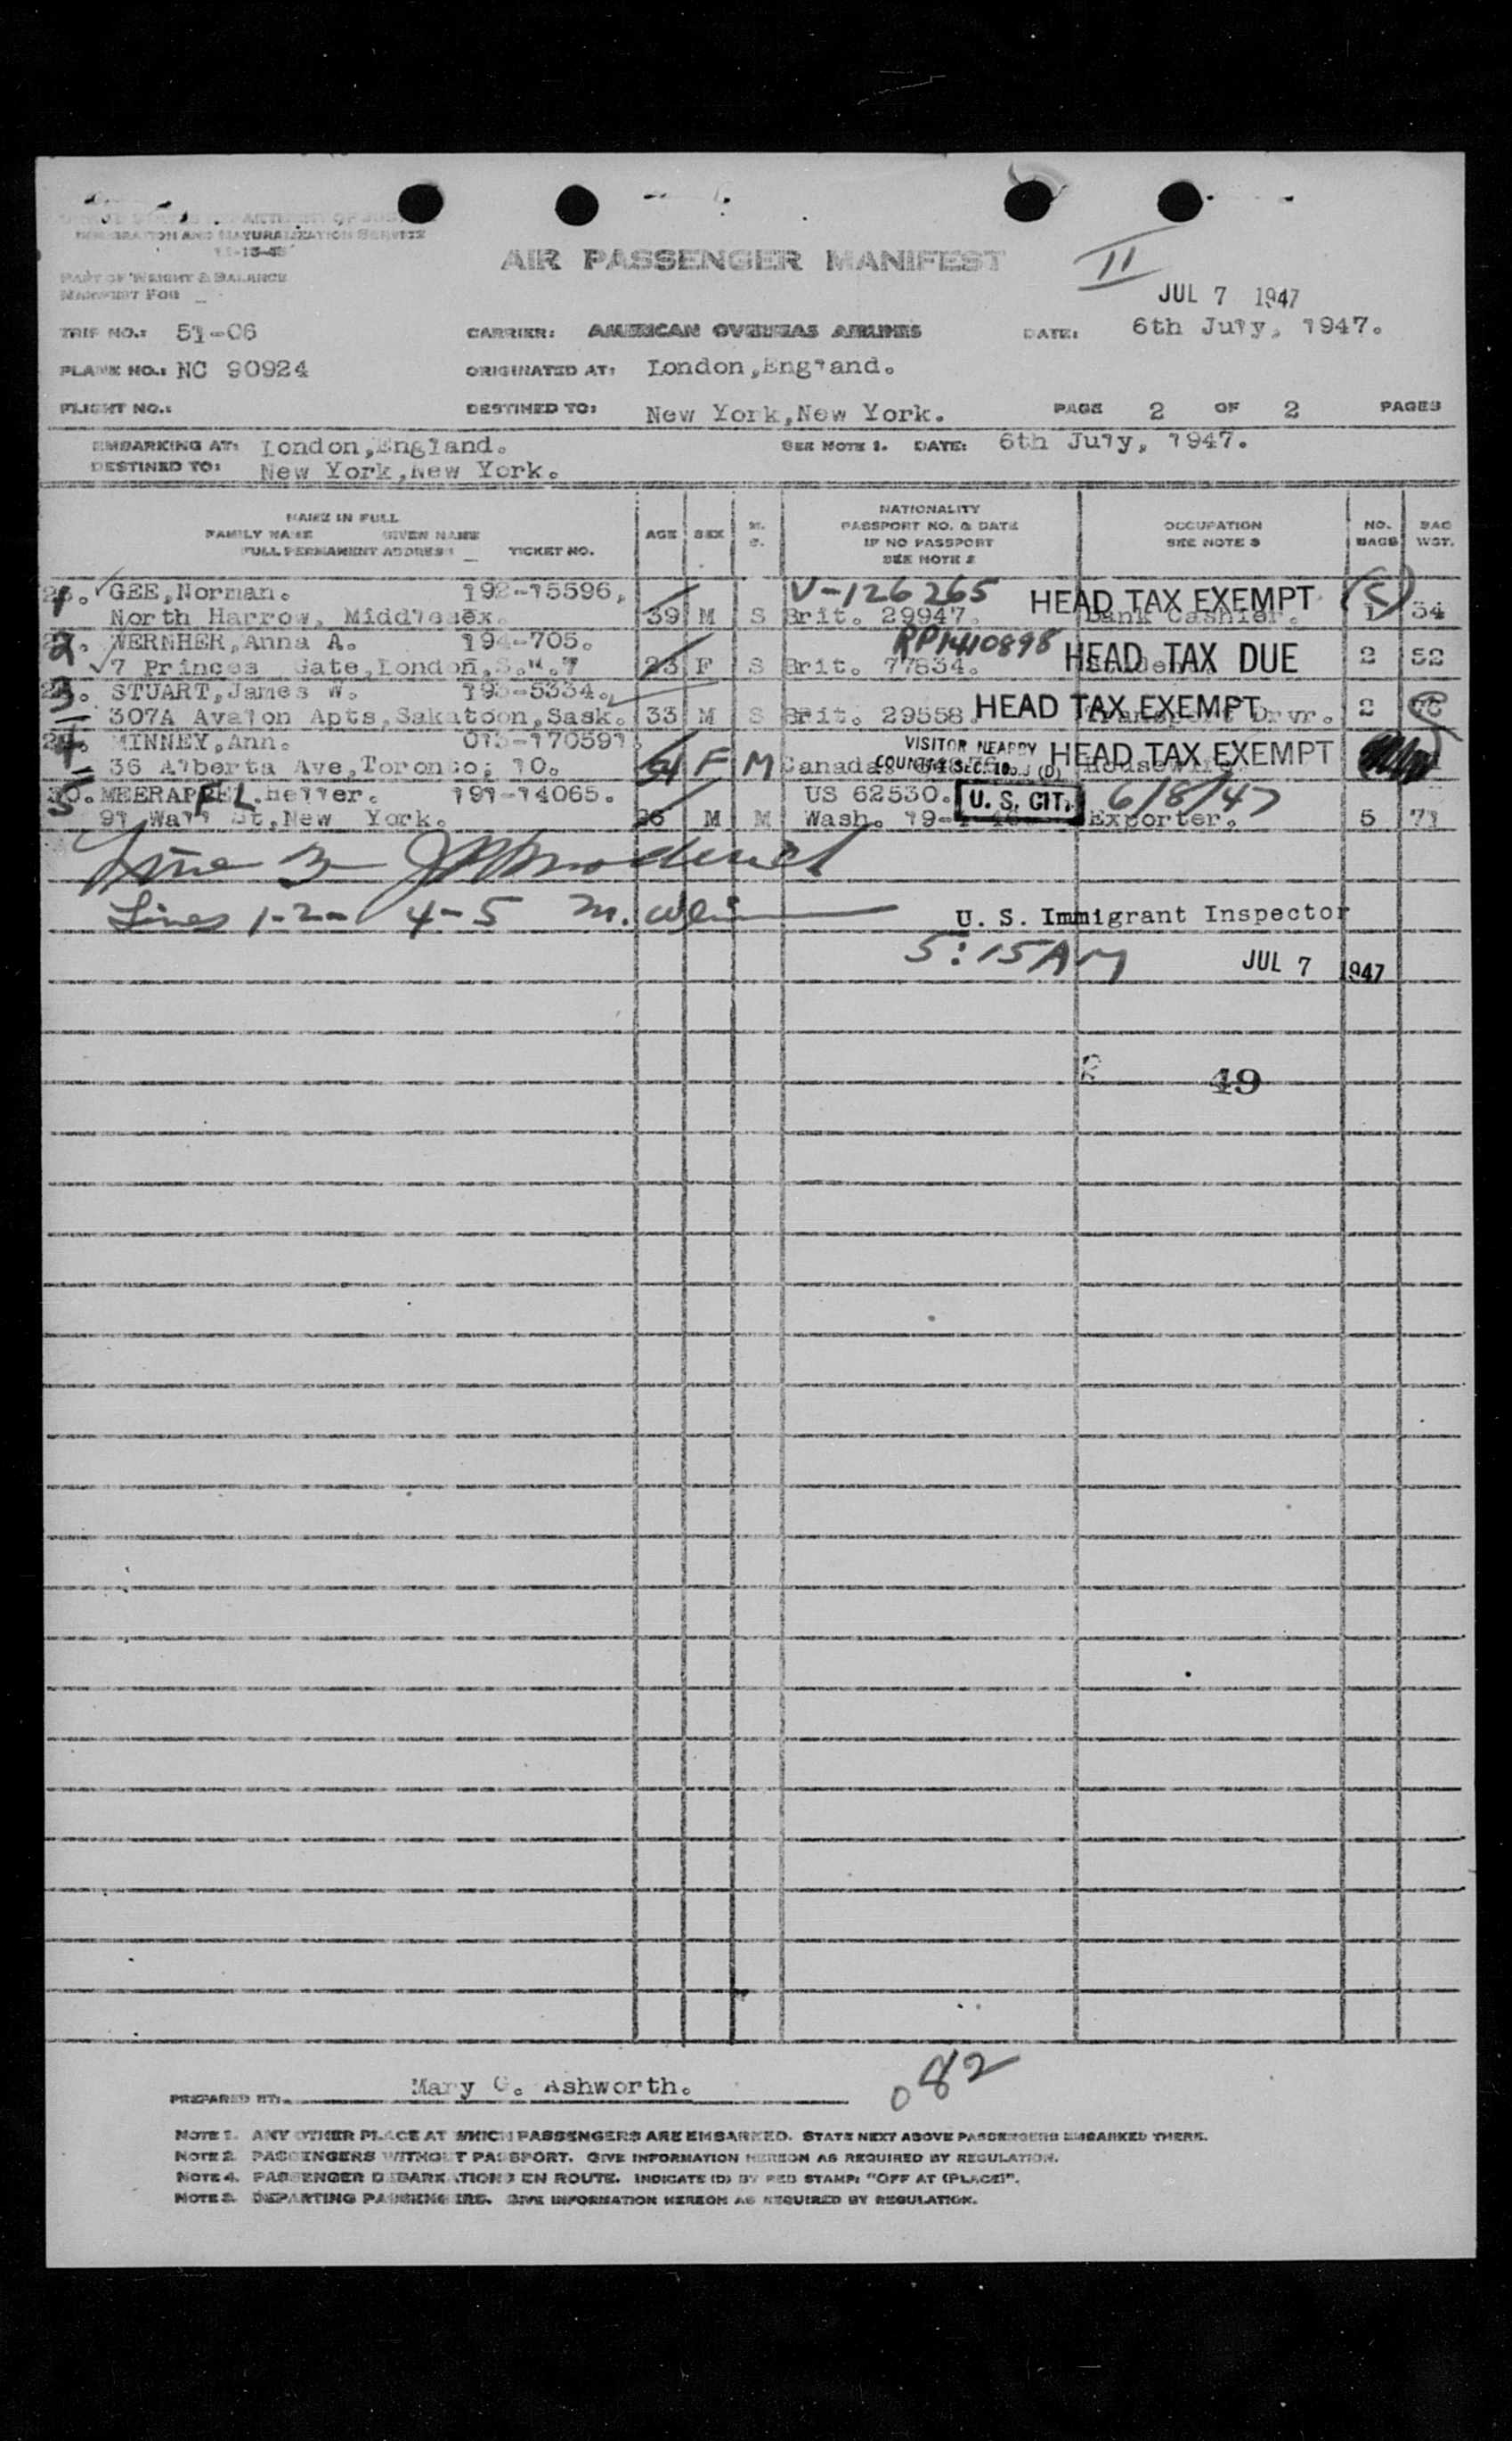 IMMIGRATION AND NATURALIZATION SERVICE
AIR PASSENGER MANIFEST
II
PART OF WEIGHT & BALANCE
MANIFEST FOR
JUL 7 1947
TRIP NO.: 51-06 CARRIER: AMERICAN OVERSEAS AIRLINES DATE: 6th July, 1947.
PLANE NO.: NC 90924 ORIGINATED AT: London,England.
FLIGHT NO.: DESTINED TO: New York,New York. PAGE 2 OF 2 PAGES
EMBARKING AT: London,England. SEE NOTE 1. DATE: 6th July, 1947.
DESTINED TO: New York,New York.
NAME IN FULL
FAMILY NAME GIVEN NAME
FULL PERMANENT ADDRESS TICKET NO. AGE SEX M. S. NATIONALITY
PASSPORT NO. & DATE
IF NO PASSPORT
SEE NOTE 2 OCCUPATION
SEE NOTE 3 NO.
BAGS BAG
WGT.
1. GEE,Norman. 192-15596. V-126265 HEAD TAX EXEMPT
North Harrow, Middlesex. 39 M S Brit. 29947. Bank Cashier. 1 34
2. WERNHER,Anna A. 194-705. RP1410898 HEAD TAX DUE
7 Princes Gate,London,S.W.7 23 F S Brit. 77834. 2 52
3. STUART,James W. 193-5334.
307A Avalon Apts,Sakatoon,Sask. 33 M S Brit. 29558. HEAD TAX EXEMPT Drvr. 2
4. MINNEY,Ann. 013-170591. VISITOR NEARBY HEAD TAX EXEMPT
36 Alberta Ave,Toronto; 10. 54 F M Canada. Housewife
5. MEERAPFEL.Heller. 191-14065. US 62530. U. S. CIT. 6/8/47
91 Wall St,New York. 26 M M Wash. Exporter. 5 71
Line 3
Lines 1-2- 4-5 U. S. Immigrant Inspector
5:15 AM JUL 7 1947
2 49
082
PREPARED BY: Mary C. Ashworth.
NOTE 1. ANY OTHER PLACE AT WHICH PASSENGERS ARE EMBARKED. STATE NEXT ABOVE PASSENGERS EMBARKED THERE.
NOTE 2. PASSENGERS WITHOUT PASSPORT. GIVE INFORMATION HEREON AS REQUIRED BY REGULATION.
NOTE 4. PASSENGER DEBARKATIONS EN ROUTE. INDICATE (D) BY RED STAMP: "OFF AT (PLACE)".
NOTE 3. DEPARTING PASSENGERS. GIVE INFORMATION HEREON AS REQUIRED BY REGULATION.